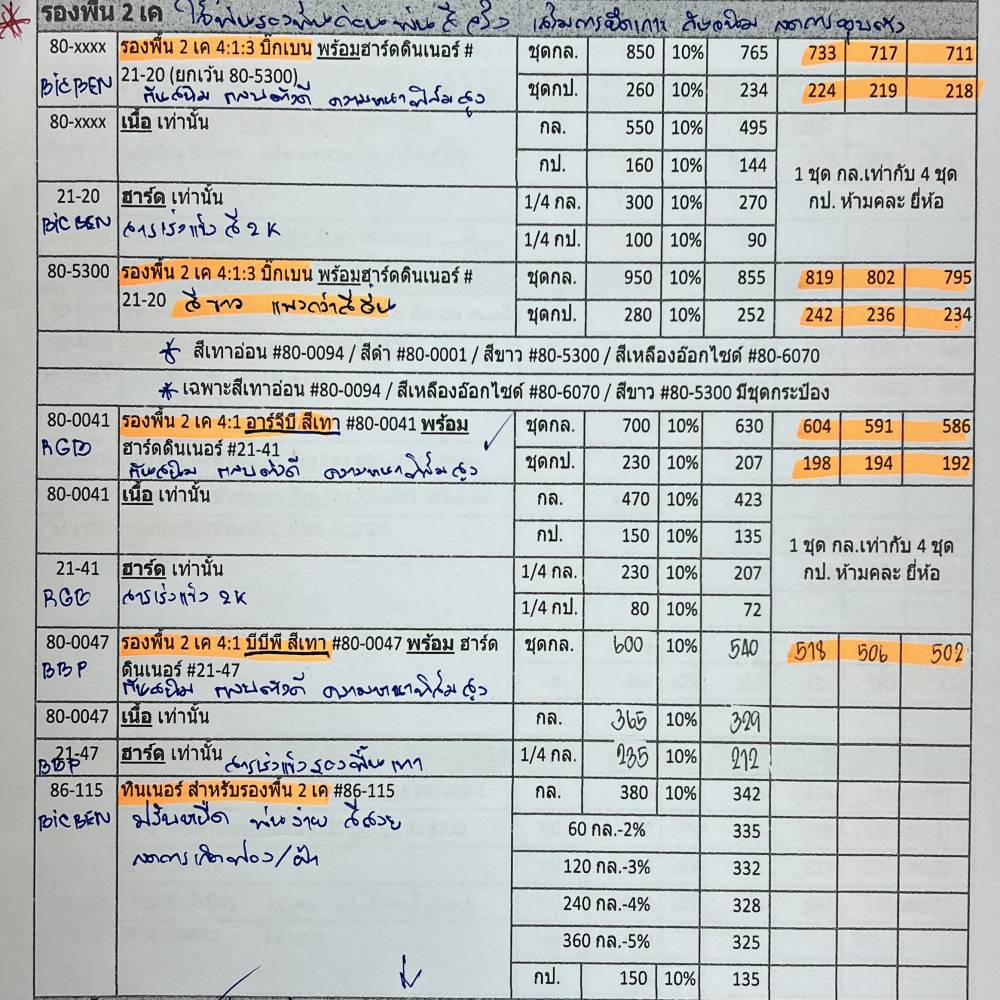 รองพื้น 2 เค ใช้พ่นรองพื้นก่อนพ่นสีจริง เสริมการยึดเกาะ กันสนิม ลดการยุบตัว
80-xxxx รองพื้น 2 เค 4:1:3 บิ๊กเบน พร้อมฮาร์ดดินเนอร์ # ชุดกล. 850 10% 765 733 717 711
BIC BEN 21-20 (ยกเว้น 80-5300) ชุดกป. 260 10% 234 224 219 218
กันสนิม กลบตัวดี ความหนาฟิล์มสูง
80-xxxx เนื้อ เท่านั้น กล. 550 10% 495
กป. 160 10% 144
1 ชุด กล.เท่ากับ 4 ชุด
กป. ห้ามคละ ยี่ห้อ
21-20 ฮาร์ด เท่านั้น 1/4 กล. 300 10% 270
BIC BEN สารเร่งแข็ง สี 2K 1/4 กป. 100 10% 90
80-5300 รองพื้น 2 เค 4:1:3 บิ๊กเบน พร้อมฮาร์ดดินเนอร์ # ชุดกล. 950 10% 855 819 802 795
21-20 สีขาว แพงกว่าสีอื่น ชุดกป. 280 10% 252 242 236 234
* สีเทาอ่อน #80-0094 / สีดำ #80-0001 / สีขาว #80-5300 / สีเหลืองอ๊อกไซด์ #80-6070
* เฉพาะสีเทาอ่อน #80-0094 / สีเหลืองอ๊อกไซด์ #80-6070 / สีขาว #80-5300 มีชุดกระป๋อง
80-0041 รองพื้น 2 เค 4:1 อาร์จีบี สีเทา #80-0041 พร้อม ชุดกล. 700 10% 630 604 591 586
RGB ฮาร์ดดินเนอร์ #21-41 ชุดกป. 230 10% 207 198 194 192
กันสนิม กลบตัวดี ความหนาฟิล์มสูง
80-0041 เนื้อ เท่านั้น กล. 470 10% 423
กป. 150 10% 135
1 ชุด กล.เท่ากับ 4 ชุด
กป. ห้ามคละ ยี่ห้อ
21-41 ฮาร์ด เท่านั้น 1/4 กล. 230 10% 207
RGB สารเร่งแข็ง 2K 1/4 กป. 80 10% 72
80-0047 รองพื้น 2 เค 4:1 บีบีพี สีเทา #80-0047 พร้อม ฮาร์ด ชุดกล. 600 10% 540 518 506 502
BBP ดินเนอร์ #21-47
กันสนิม กลบตัวดี ความหนาฟิล์มสูง
80-0047 เนื้อ เท่านั้น กล. 365 10% 329
21-47 ฮาร์ด เท่านั้น สารเร่งแข็งรองพื้นเทา 1/4 กล. 235 10% 212
BBP
86-115 ทินเนอร์ สำหรับรองพื้น 2 เค #86-115 กล. 380 10% 342
BIC BEN ปรับหนืด พ่นง่าย สีสวย 60 กล.-2% 335
ลดการเกิดฟอง/ฝ้า 120 กล.-3% 332
240 กล.-4% 328
360 กล.-5% 325
กป. 150 10% 135